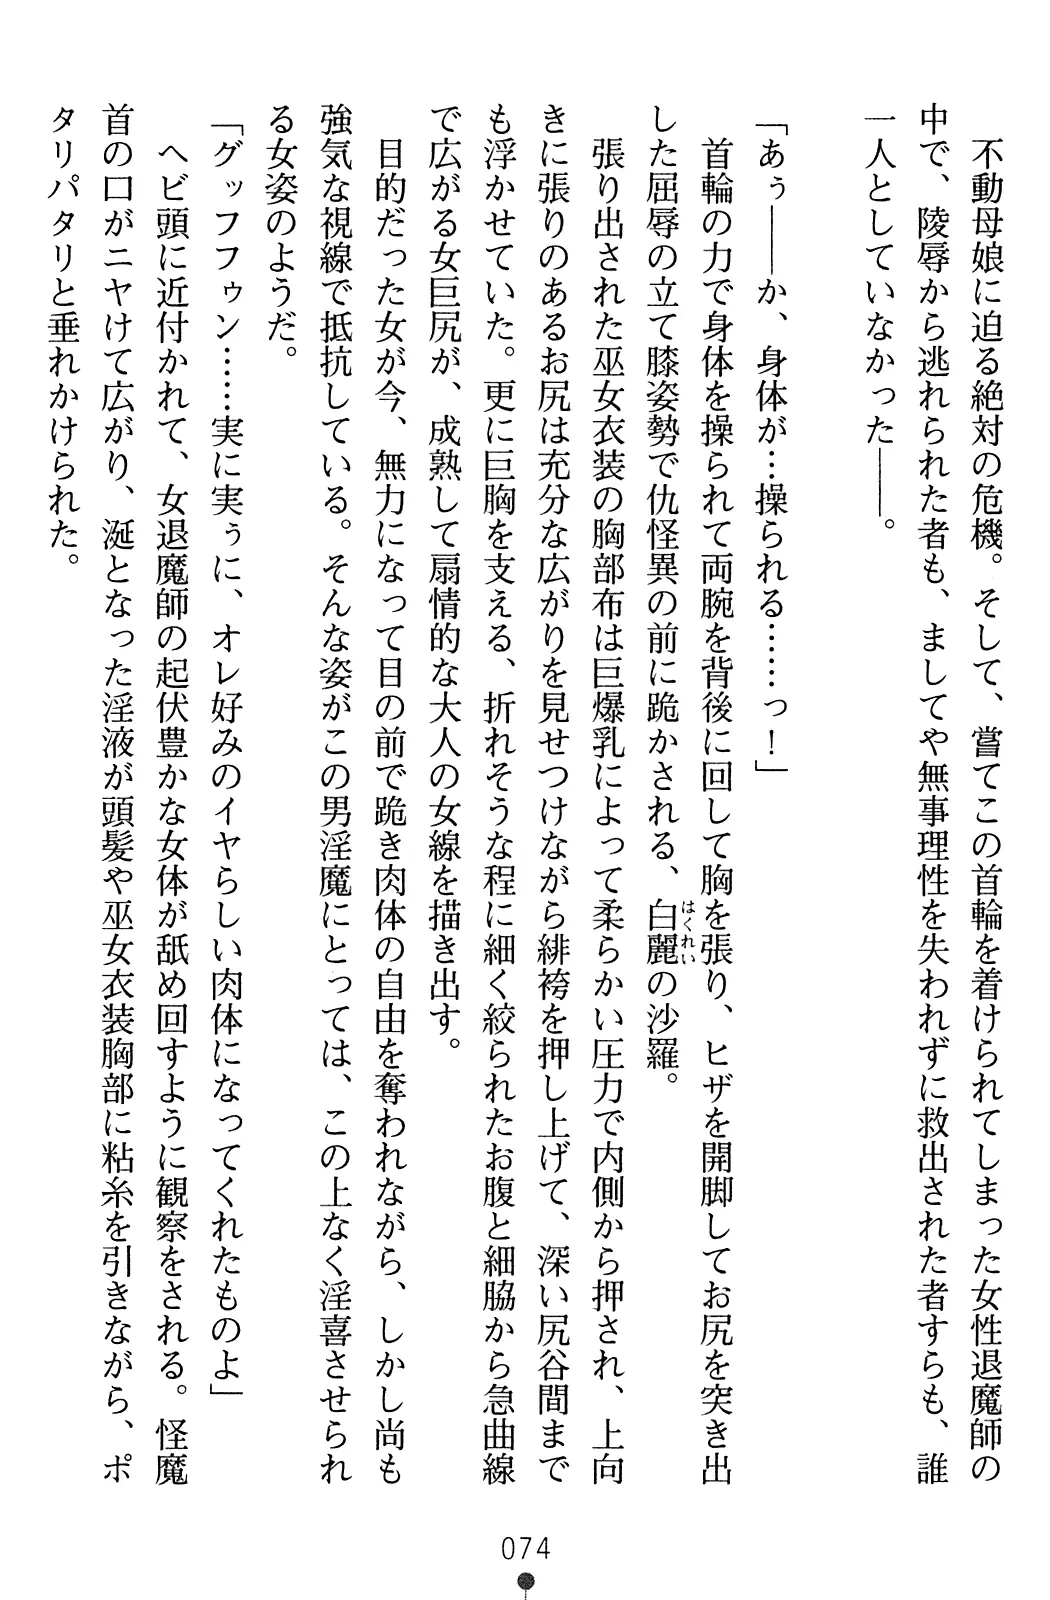 不動母娘に迫る絶対の危機。そして、嘗てこの首輪を着けられてしまった女性退魔師の
中で、陵辱から逃れられた者も、ましてや無事理性を失われずに救出された者すらも、誰
一人としていなかった――。
「あぅ――か、身体が…操られる……っ！」
　首輪の力で身体を操られて両腕を背後に回して胸を張り、ヒザを開脚してお尻を突き出
した屈辱の立て膝姿勢で仇怪異の前に跪かされる、白麗の沙羅。
はくれい
　張り出された巫女衣装の胸部布は巨爆乳によって柔らかい圧力で内側から押され、上向
きに張りのあるお尻は充分な広がりを見せつけながら緋袴を押し上げて、深い尻谷間まで
も浮かせていた。更に巨胸を支える、折れそうな程に細く絞られたお腹と細脇から急曲線
で広がる女巨尻が、成熟して扇情的な大人の女線を描き出す。
　目的だった女が今、無力になって目の前で跪き肉体の自由を奪われながら、しかし尚も
強気な視線で抵抗している。そんな姿がこの男淫魔にとっては、この上なく淫喜させられ
る女姿のようだ。
「グッフフゥン……実に実ぅに、オレ好みのイヤらしい肉体になってくれたものよ」
　ヘビ頭に近付かれて、女退魔師の起伏豊かな女体が舐め回すように観察をされる。怪魔
首の口がニヤけて広がり、涎となった淫液が頭髪や巫女衣装胸部に粘糸を引きながら、ポ
タリパタリと垂れかけられた。
074